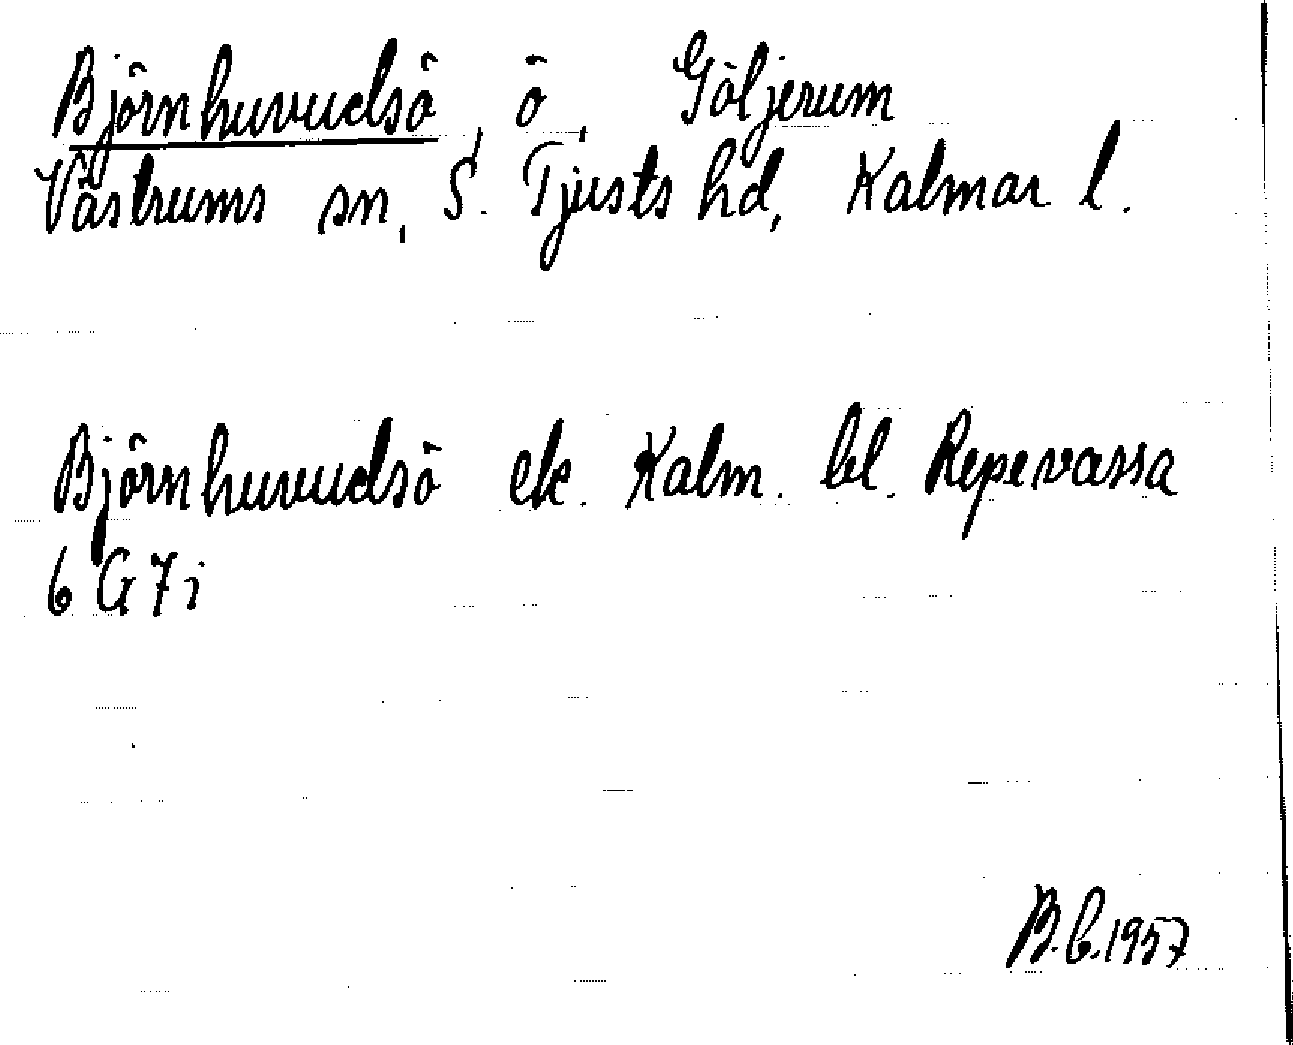 Björnhuvudsö, ö, Göljerum
Västrums sn, S. Tjusts hd, Kalmar l.
Björnhuvudsö ek. Kalm. bl. Repevassa
6 G 7 i
B.b.1957